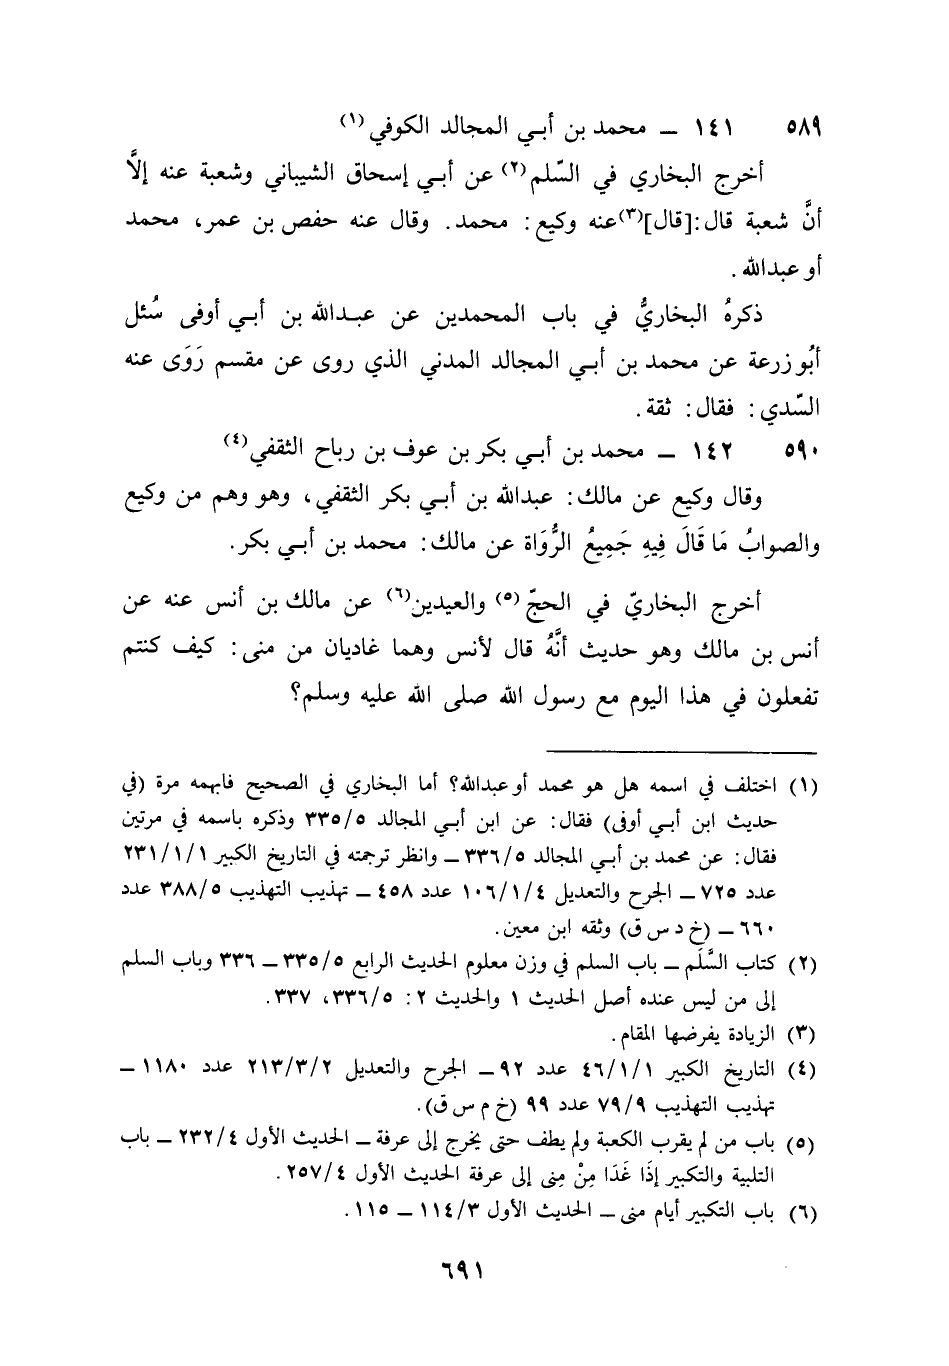 ٥٨٩ ١٤١ ــ محمد بن أبي المجالد الكوفي(١)
أخرج البخاري في السّلم(٢) عن أبي إسحاق الشيباني وشعبة عنه إلاَّ
أنَّ شعبة قال: [قال](٣) عنه وكيع: محمد. وقال عنه حفص بن عمر، محمد
أو عبدالله.
ذكرهُ البخاريُّ في باب المحمدين عن عبدالله بن أبي أوفى سُئل
أبُو زرعة عن محمد بن أبي المجالد المدني الذي روى عن مقسم رَوَى عنه
السّدي: فقال: ثقة.
٥٩٠ ١٤٢ ــ محمد بن أبي بكر بن عوف بن رباح الثقفي(٤)
وقال وكيع عن مالك: عبدالله بن أبي بكر الثقفي، وهو وهم من وكيع
والصوابُ مَا قَالَ فِيهِ جَمِيعُ الرُّوَاة عن مالك: محمد بن أبي بكر.
أخرج البخاريّ في الحجّ(٥) والعيدين(٦) عن مالك بن أنس عنه عن
أنس بن مالك وهو حديث أنَّهُ قال لأنس وهما غاديان من منى: كيف كنتم
تفعلون في هذا اليوم مع رسول الله صلى الله عليه وسلم؟
(١) اختلف في اسمه هل هو محمد أو عبدالله؟ أما البخاري في الصحيح فابهمه مرة (في
حديث ابن أبي أوفى) فقال: عن ابن أبي المجالد ٣٣٥/٥ وذكره باسمه في مرتين
فقال: عن محمد بن أبي المجالد ٣٣٦/٥ ــ وانظر ترجمته في التاريخ الكبير ٢٣١/١/١
عدد ٧٢٥ ــ الجرح والتعديل ١٠٦/١/٤ عدد ٤٥٨ ــ تهذيب التهذيب ٣٨٨/٥ عدد
٦٦٠ ــ (خ د س ق) وثقه ابن معين.
(٢) كتاب السَّلَم ــ باب السلم في وزن معلوم الحديث الرابع ٣٣٥/٥ ــ ٣٣٦ وباب السلم
إلى من ليس عنده أصل الحديث ١ والحديث ٢: ٣٣٦/٥، ٣٣٧.
(٣) الزيادة يفرضها المقام.
(٤) التاريخ الكبير ٤٦/١/١ عدد ٩٢ ــ الجرح والتعديل ٢١٣/٣/٢ عدد ١١٨٠ ــ
تهذيب التهذيب ٧٩/٩ عدد ٩٩ (خ م س ق).
(٥) باب من لم يقرب الكعبة ولم يطف حتى يخرج إلى عرفة ــ الحديث الأول ٢٣٢/٤ ــ باب
التلبية والتكبير إذَا غَدَا مِنْ مِنى إلى عرفة الحديث الأول ٢٥٧/٤.
(٦) باب التكبير أيام منى ــ الحديث الأول ١١٤/٣ ــ ١١٥.
٦٩١